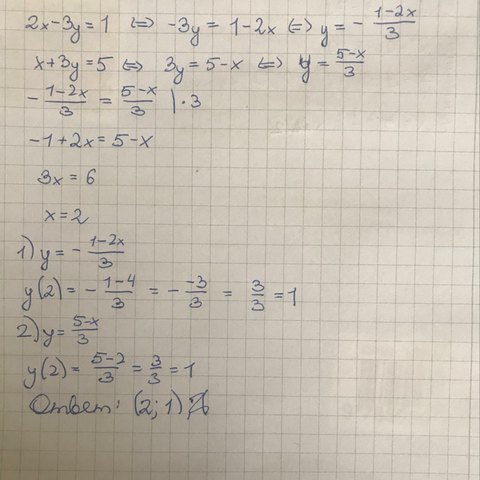 2x-3y=1 ⇔ -3y= 1-2x ⇔ y= - (1-2x)/3
x+3y=5 ⇔ 3y=5-x ⇔ y= (5-x)/3
- (1-2x)/3 = (5-x)/3 |·3
-1+2x=5-x
3x=6
x=2
1) y= - (1-2x)/3
y(2)= - (1-4)/3 = - (-3)/3 = 3/3 =1
2) y= (5-x)/3
y(2)= (5-2)/3 = 3/3 =1
Ответ: (2; 1)